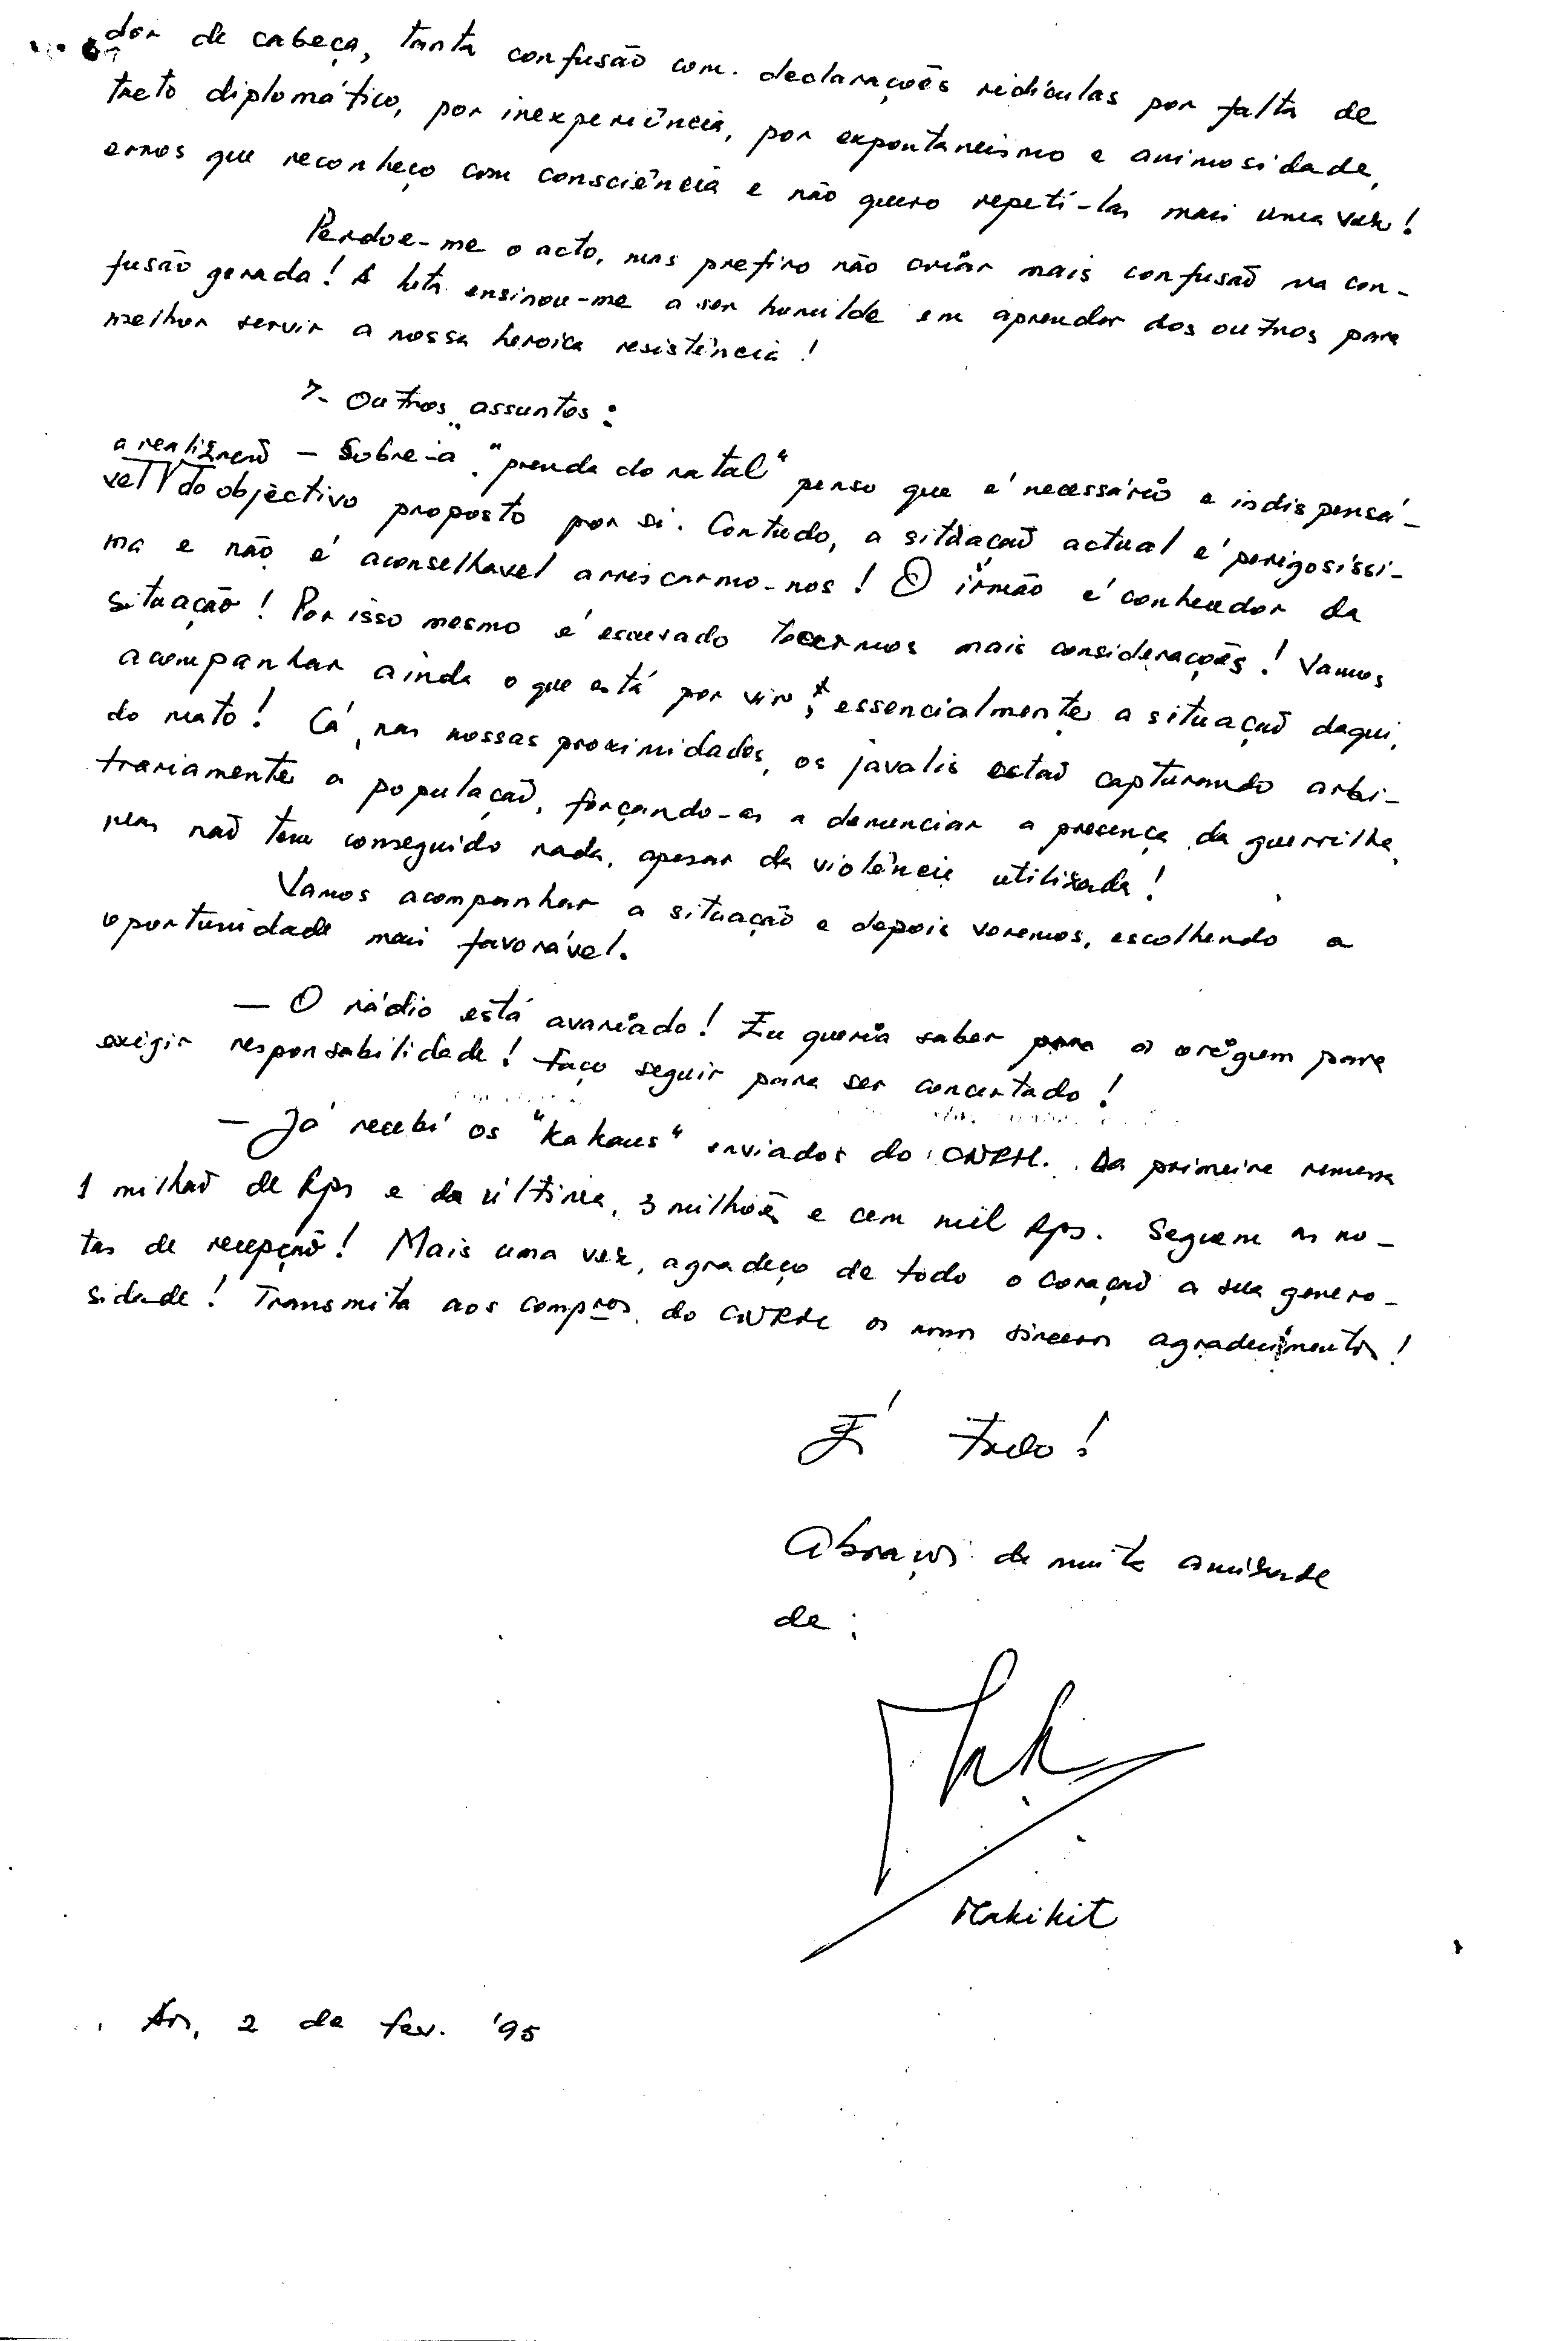 dor de cabeça, tanta confusão com declarações ridículas por falta de
tacto diplomático, por inexperiência, por expontaneismo e animosidade,
erros que reconheço com consciência e não quero repetí-las mais uma vez!
Perdoe-me o acto, mas prefiro não criar mais confusão na con-
fusão gerada! A luta ensinou-me a ser humilde em aprender dos outros para
melhor servir a nossa heroica resistência!
7- Outros assuntos:
a realização — Sobre a "prenda do natal" penso que é necessário e indispensá-
vel do objectivo proposto por si. Contudo, a situação actual é perigosíssi-
ma e não é aconselhavel arriscarmo-nos! O irmão é conhecedor da
situação! Por isso mesmo é escusado tecermos mais considerações! Vamos
acompanhar ainda o que está por vir, essencialmente a situação daqui,
do mato! Cá, nas nossas proximidades, os javalis estão capturando arbi-
trariamente a população, forçando-as a denunciar a presença da guerrilha,
mas não tem conseguido nada, apesar da violência utilizada!
Vamos acompanhar a situação e depois veremos, escolhendo a
oportunidade mais favorável.
— O rádio está avariado! Eu queria saber a origem para
exigir responsabilidade! Faço seguir para ser concertado!
— Já recebí os "kakaus" enviados do CNRM. Da primeira remessa
1 milhão de Rps e da última, 3 milhões e cem mil Rps. Seguem as no-
tas de recepção! Mais uma vez, agradeço de todo o coração a sua genero-
sidade! Transmita aos compros. do CNRM os nossos sinceros agradecimentos!
É tudo!
Abraços de muita amizade
de:
Makikit
As, 2 de fev. '95